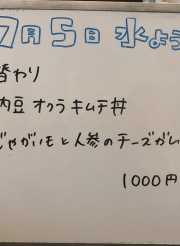 7月5日 水よう
替わり
内豆 オクラ キムチ丼
じゃがいもと人参のチーズガレ
1000円